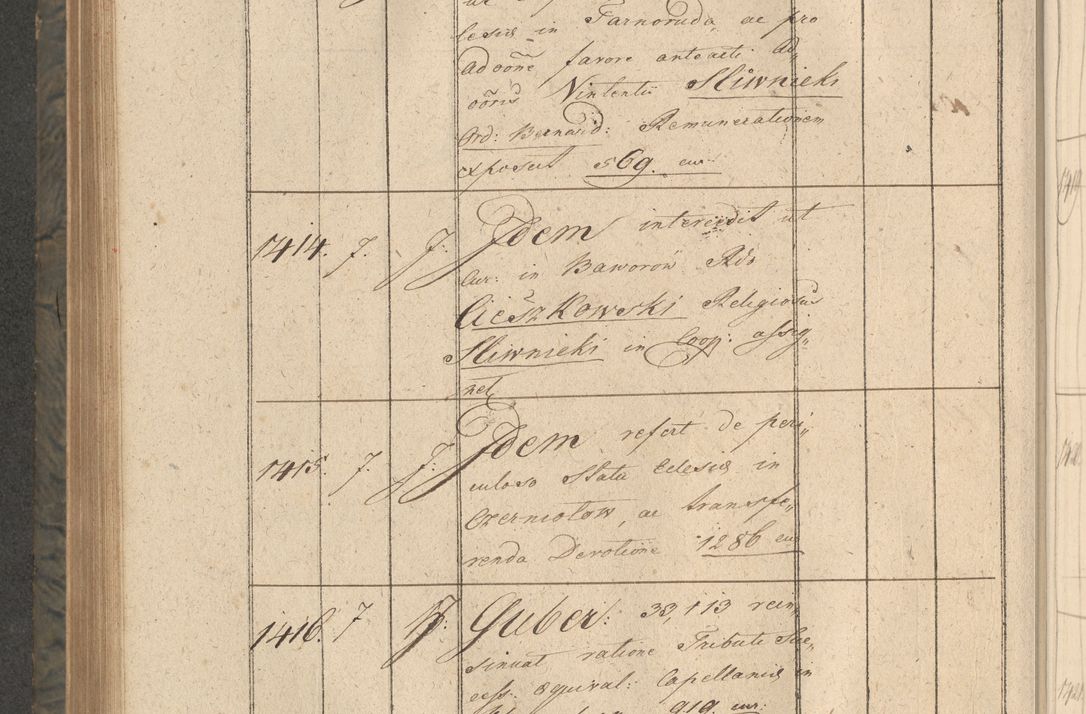 lesiæ in Tarnoruda, ac pro
adoone favore anteacti Ad„
ooris Vintentii Sliwnicki
Ord: Bernard: Remunerationem
exposcit 569. cur.
1414. 7. J. Idem intercedit ut
Cur: in Baworow Rdo
Cieszkowski Religiosus
Sliwnicki in Coop. assig„
net
1415. 7. J. Idem refert de peri„
culoso Statu Eclesiæ in
Czernielow, ac transfe„
renda Devotione 1286 cur
1416. 7 J. Guber: 33,113 rein„
sinuat ratione Tributi Suc„
cess: Equival: Capellaniæ in
919. cur: